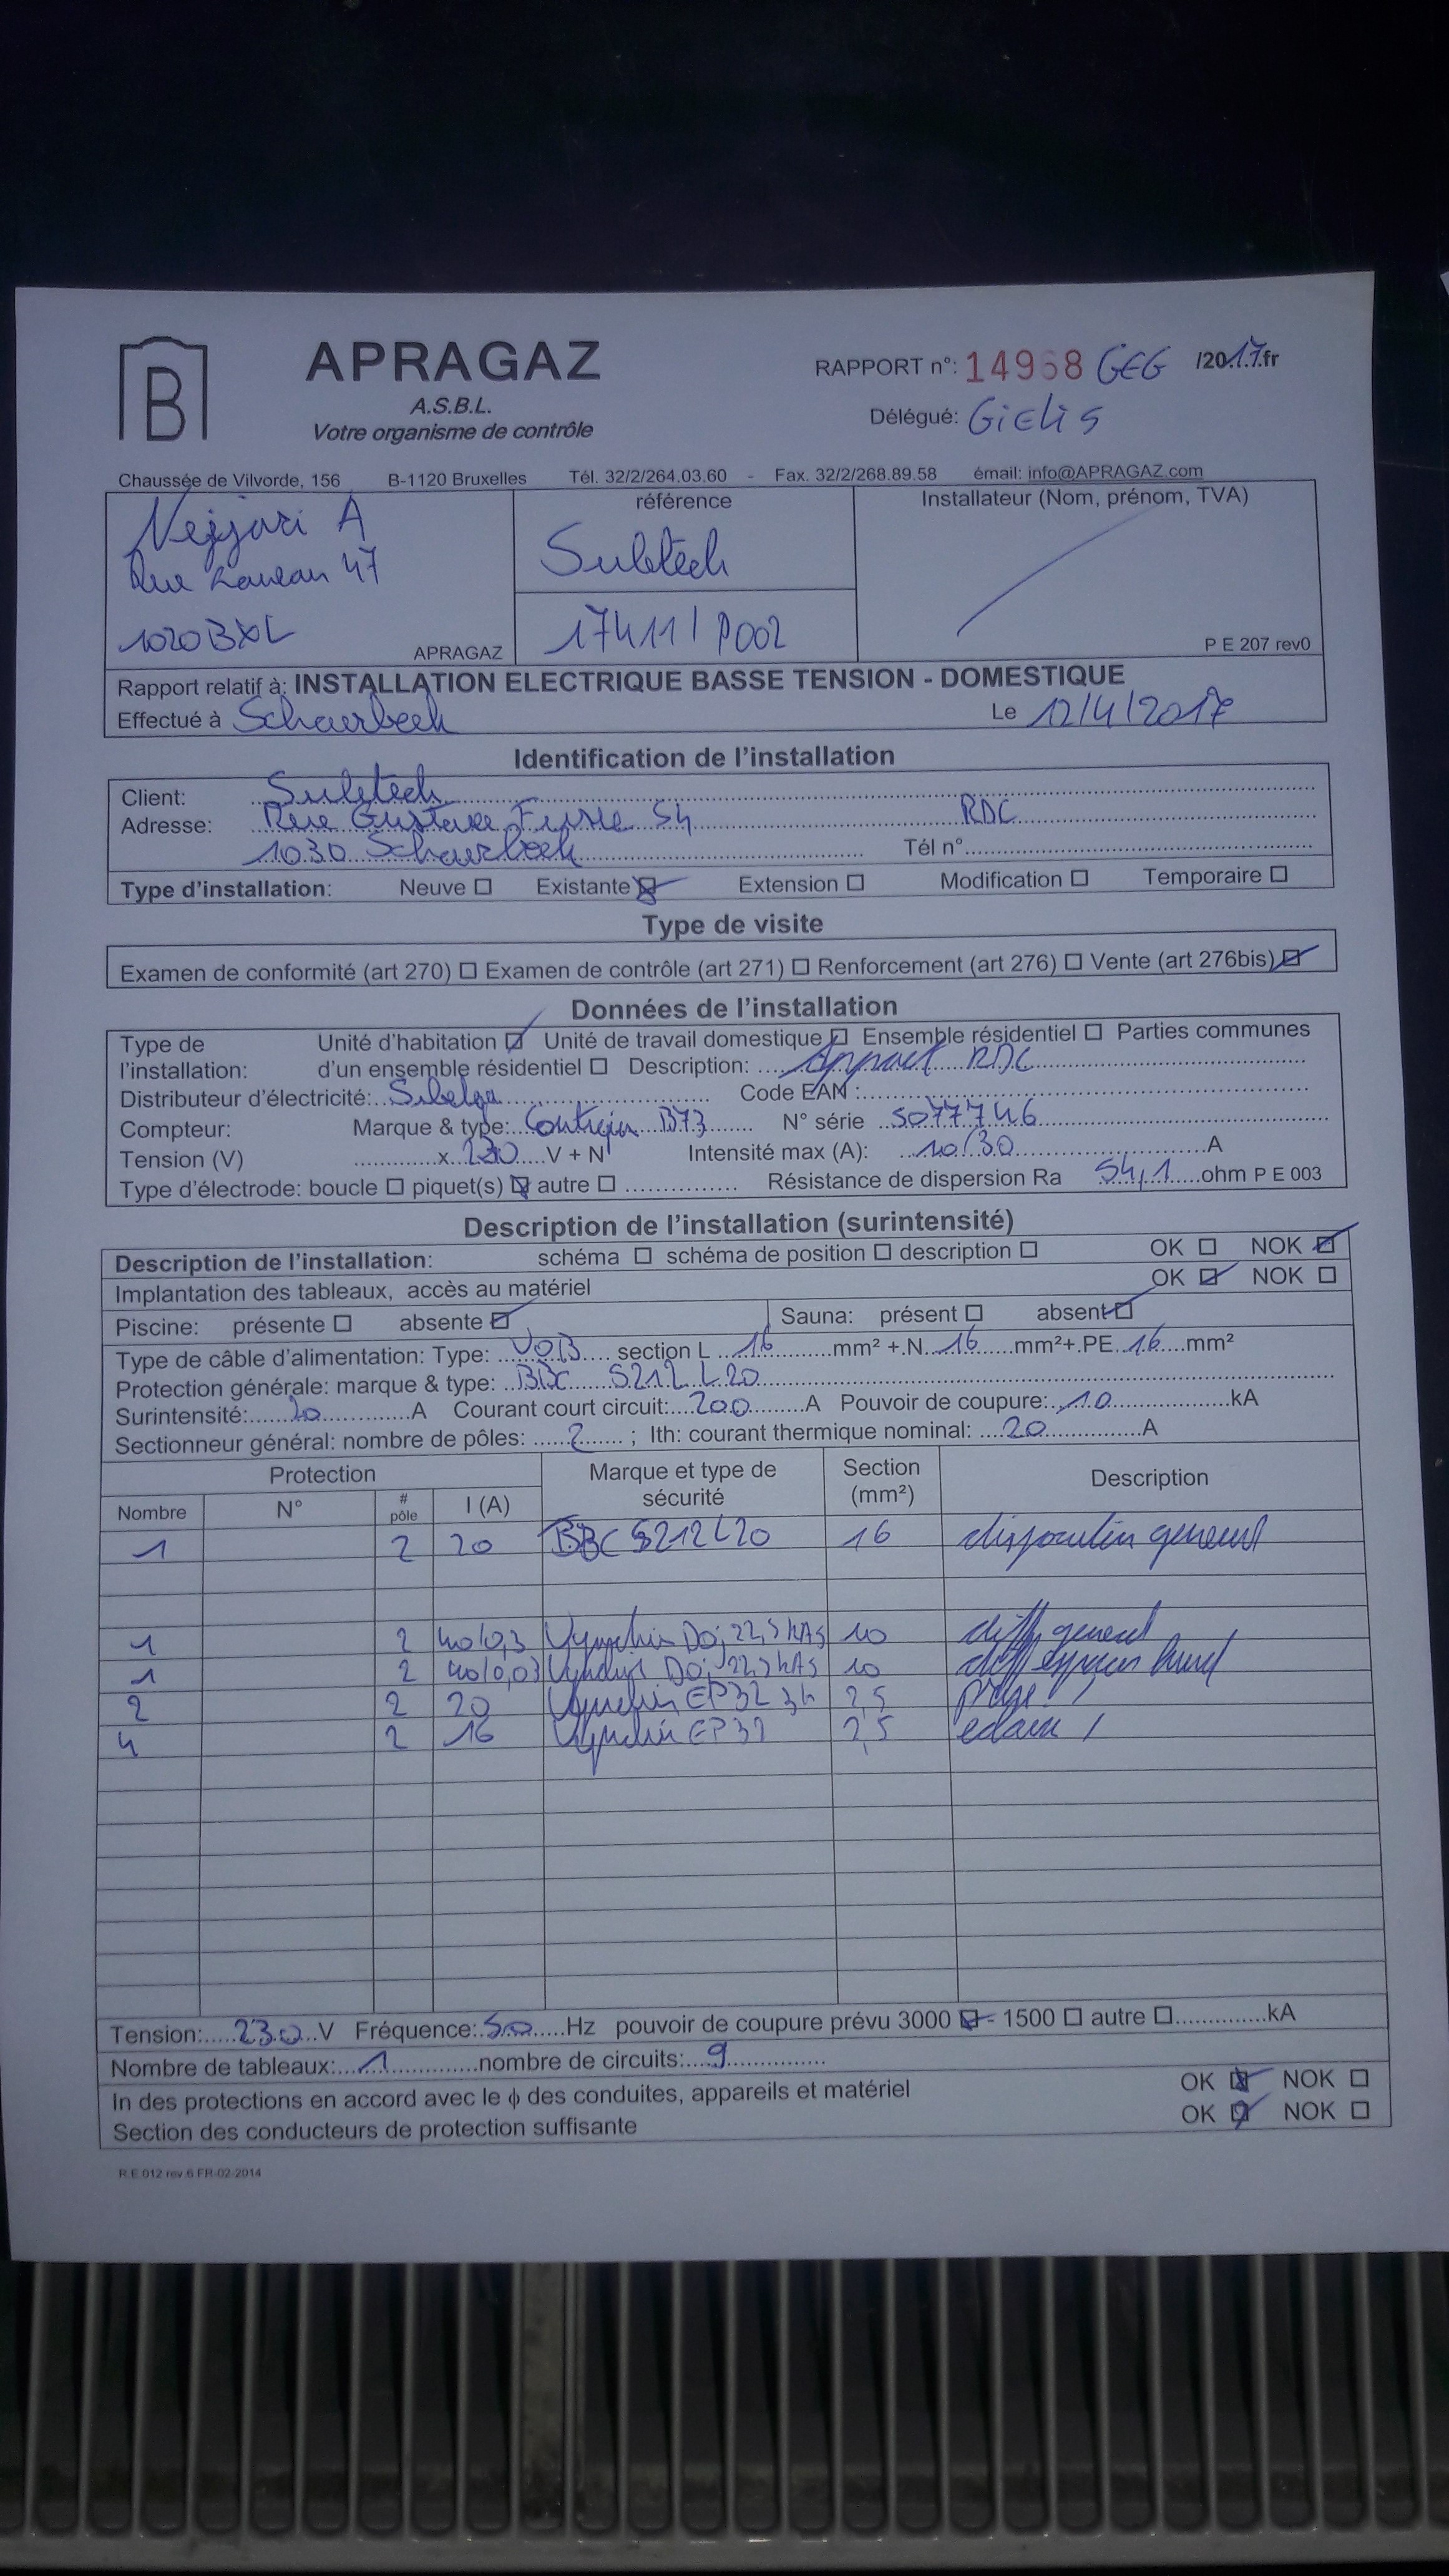 B
APRAGAZ
A.S.B.L.
Votre organisme de contrôle
RAPPORT n°: 14968 GEG /2017.fr
Délégué: Gielis
Chaussée de Vilvorde, 156 B-1120 Bruxelles Tél. 32/2/264.03.60 - Fax. 32/2/268.89.58 émail: info@APRAGAZ.com
Nejjari A
Rue 47
1020 BXL
APRAGAZ
référence
Subtech
17411/P002
Installateur (Nom, prénom, TVA)
P E 207 rev0
Rapport relatif à: INSTALLATION ELECTRIQUE BASSE TENSION - DOMESTIQUE
Effectué à Schaerbeek Le 12/4/2017
Identification de l'installation
Client: Subtech
Adresse: Rue Gustave 54 RDC
1030 Schaerbeek Tél n°
Type d'installation: Neuve ☐ Existante ☒ Extension ☐ Modification ☐ Temporaire ☐
Type de visite
Examen de conformité (art 270) ☐ Examen de contrôle (art 271) ☐ Renforcement (art 276) ☐ Vente (art 276bis) ☑
Données de l'installation
Type de Unité d'habitation ☑ Unité de travail domestique ☐ Ensemble résidentiel ☐ Parties communes
l'installation: d'un ensemble résidentiel ☐ Description: Appart RDC
Distributeur d'électricité: Sibelga Code EAN :
Compteur: Marque & type: Contigea B73 N° série 5077746
Tension (V) x 230 V + N Intensité max (A): 10/30 A
Type d'électrode: boucle ☐ piquet(s) ☒ autre ☐ Résistance de dispersion Ra 54,1 ohm P E 003
Description de l'installation (surintensité)
Description de l'installation: schéma ☐ schéma de position ☐ description ☐ OK ☐ NOK ☑
Implantation des tableaux, accès au matériel OK ☑ NOK ☐
Piscine: présente ☐ absente ☑ Sauna: présent ☐ absent ☑
Type de câble d'alimentation: Type: VOB section L 16 mm² + N 16 mm²+ PE 16 mm²
Protection générale: marque & type: BBC S212 L20
Surintensité: 20 A Courant court circuit: 200 A Pouvoir de coupure: 10 kA
Sectionneur général: nombre de pôles: 2 ; Ith: courant thermique nominal: 20 A
Protection Marque et type de sécurité Section (mm²) Description
Nombre N° # pôle I (A)
1 2 20 BBC S212 L20 16 general
1 2 40/0,3 Vynckier Do; 22,5 kAs 10 diff general
1 2 40/0,03 Vynckier Do; 22,5 kAs 10 diff
2 2 20 Vynckier EP32 2,5 prise
4 2 16 Vynckier EP32 2,5 eclair
Tension: 230 V Fréquence: 50 Hz pouvoir de coupure prévu 3000 ☑ - 1500 ☐ autre ☐ kA
Nombre de tableaux: 1 nombre de circuits: 9
In des protections en accord avec le ϕ des conduites, appareils et matériel OK ☒ NOK ☐
Section des conducteurs de protection suffisante OK ☑ NOK ☐
R.E.012 rev.6 FR-02-2014